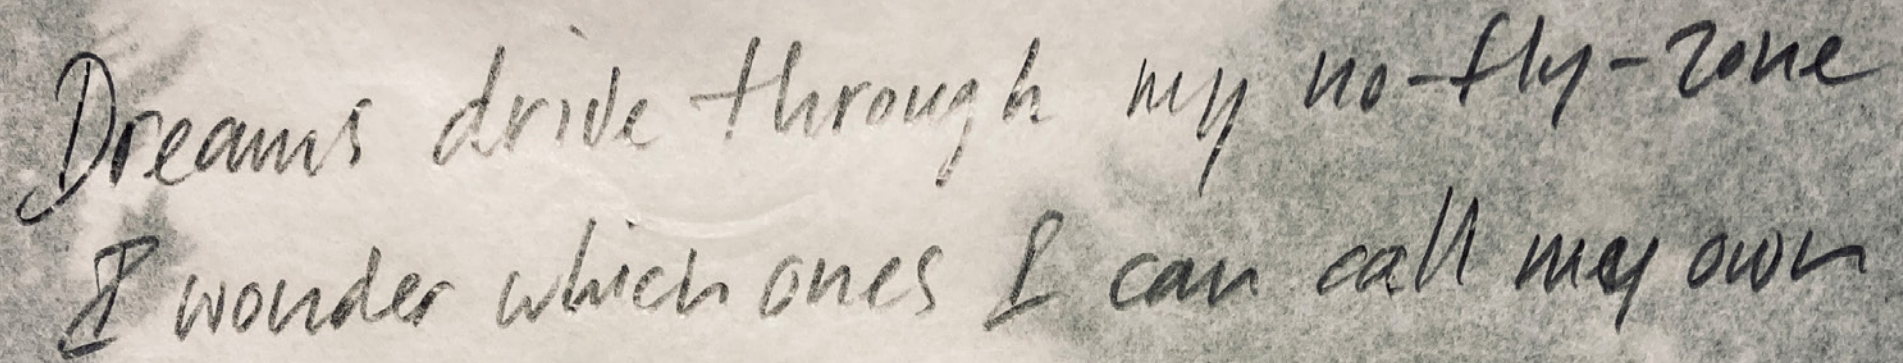 Dreams drive through my no-fly-zone
I wonder which ones I can call my own